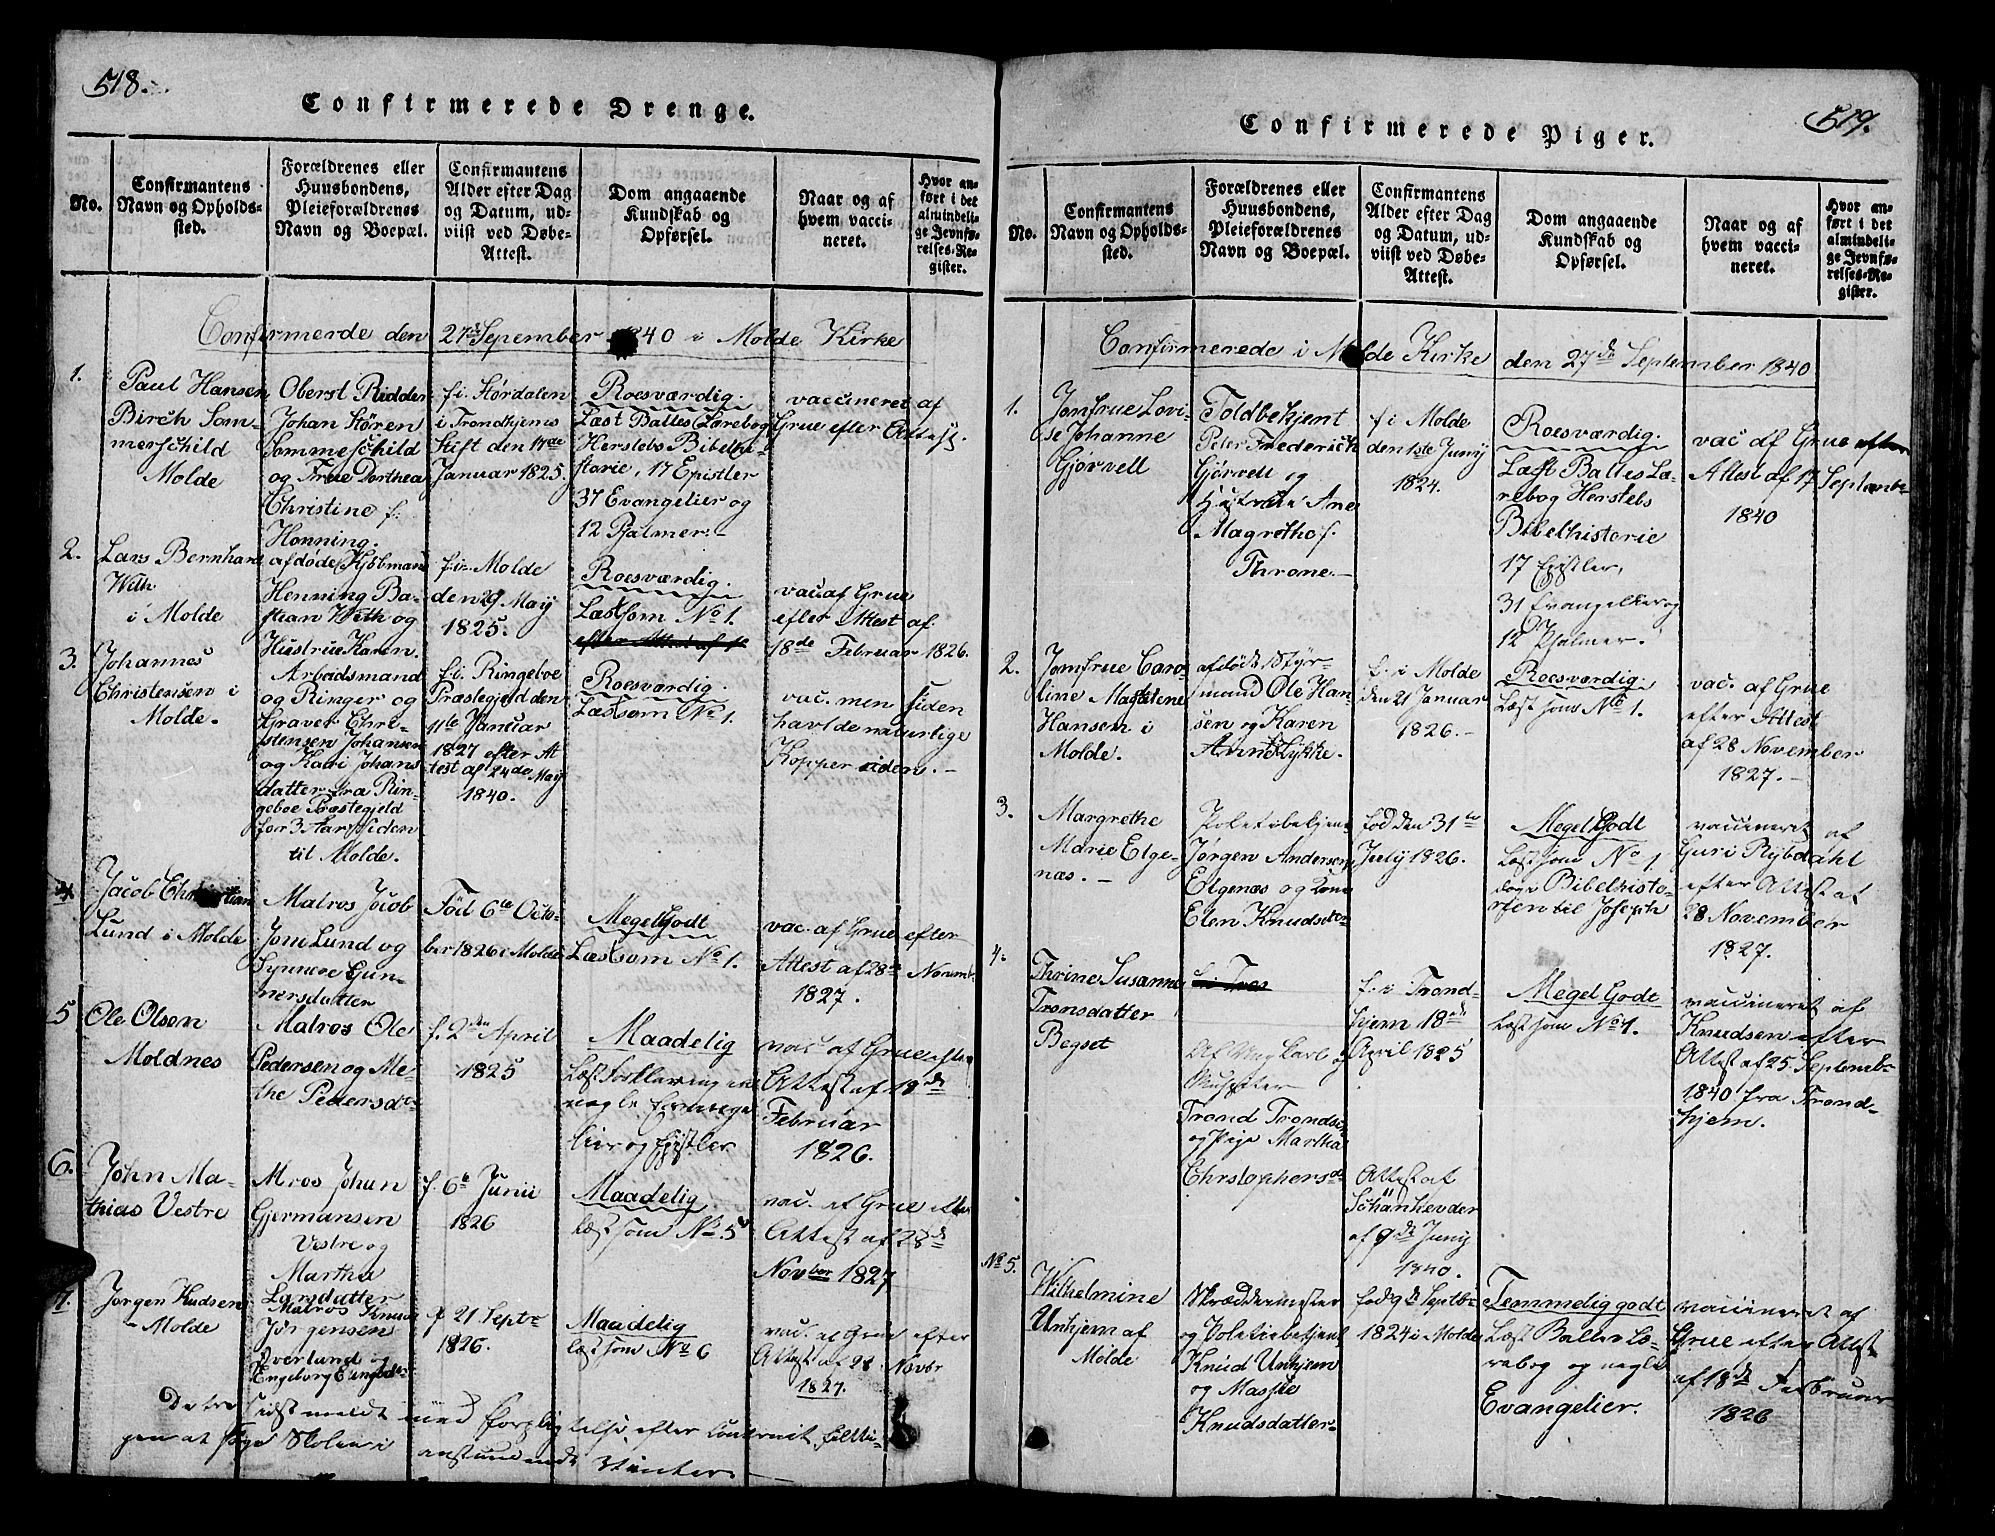 518.
Confirmerede Drenge.
No.
Confirmantens
Navn og Opholds-
sted.
Forældrenes eller
Huusbondens,
Pleieforældrenes
Navn og Boepæl.
Confirmantens
Alder efter Dag
og Datum, ud-
viist ved Døbe-
Attest.
Dom angaaende
Kundskab og
Opførsel.
Naar og af
hvem vacci-
neret.
Hvor an-
ført i det
almindeli-
ge Jevnfø-
relses-Re-
gister.
Confirmerde den 27de Sepember 1840 i Molde Kirke
1.
Paul Hansen
Birch Som-
merschild
Molde
Oberst Ridder
Johan Stören
Sommeschild
og Frue Dorthea
Christine f.
Honning.
f. i. Stördalen
i Trondhjems
Stift den 17de
Januar 1825.
Roesværdig.
Læst Balles Lærebog
Herslebs Bibelhi-
storie, 17 Epistler
37 Evangelier og
12 Psalmer.-
vaccineret af
Grue efter Attest.
2.
Lars Bernhard
With
i Molde
afdøde Kjöbmand
Henning Ba-
stian With og
Hustrue Karen.
f. i. Molde
den 29 Maij
1825.
Roesværdig.
Læst som No 1.
efter Attest af 1
vac af Grue
efter Attest af
18de Februar 1826.
3.
Johannes
Christensen i
Molde.
Arbeidsmand
og Ringer og
Graver Chri-
stensen Johansen
og Kari Johans
datter fra Rin-
geboe Præstegjeld
for 3 Aar siden
til Molde.
f. i. Ringeboe
Præstegjeld den
11te Januar
1827 efter At
test af 24de Maij
1840.
Roesværdig.
Læst som No 1.
vac. men siden
havt de naturlige
Kopper siden.-
4
Jacob Christian
Lund i Molde
Matros Jacob
Jom Lund og
Synneve Gun-
nersdatter
Föd 6te Octo-
ber 1826 i Molde
Meget Godt
Læst som No 1.
vac. af Grue efter
Attest af 28de Novemb.
1827.
5
Ole Olsen
Moldnes
Matros Ole
Pedersen og Me-
the Pedersdtr
f. 2den April
1825
Maadelig
Læst Forklaring en
nogle Evange
lier og Epistler
vac af Grue efter
Attest af 18de
Februar
1826.
6.
John Ma-
thias Vestre
Mros Johan
Gjermansen
Vestre og
Martha
Larsdatter
f. 6te Junii
1826
Maadelig
læst som No. 5
vac. af Grue efter
Attest af 28de
Novber 1827
7.
Jörgen Kudsen
Molde
Matros Knud
Jörgensen
Overland og
Engeborg
f 21 Septr
1826.
Maadelig
læst som No 6
vac. af Grue efter
Attest af 28 Novbr
1827.
De tre sidst meldt med Forpligtelse efter
gen at söge Skolen i anstundende Vinter
519.
Confirmerede Piger.
No.
Confirmantens
Navn og Opholds-
sted.
Forældrenes eller
Huusbondens,
Pleieforældrenes
Navn og Boepæl.
Confirmantens
Alder efter Dag
og Datum, ud-
viist ved Døbe-
Attest.
Dom angaaende
Kundskab og
Opførsel.
Naar og af
hvem vacci-
neret.
Hvor an-
ført i det
almindeli-
ge Jevnfø-
relses-Re-
gister.
Confirmerede i Molde Kirke den 27de September 1840
1.
Jomfrue Lovi-
se Johanne
Gjörvell
Toldbetjent
Peter Frederich
Gjörvell og
Hustrue Ane
Magretha f.
Throne.-
f i Molde
den 1ste Junij
1824.
Roesværdig.
Læst Balles Læ-
rebog Herslebs
Bibelhistorie
17 Epistler,
31 Evangelier og
12 Psalmer.
vac af Grue efter
Attest af 17 Septembr
1840
2.
Jomfrue Caro-
line Magdalene
Hansen i
Molde.
afdöde Styr-
mand Ole Han-
sen og Karen
Anne Lykke.
f. i Molde
den 21 Januar
1826.-
Roesværdig.
Læst som No 1.
vac. af Grue
efter Attest
af 28 November
1827.-
3.
Margrethe
Marie Elge-
næs.-
Politibetjen
Jörgen Andersen
Elgenæs og Kone
Elen Knudsdtr
föd den 31te
July 1826.
Meget Godt
Læst som No 1
dog Bibelhisto-
rien til Joseph
vaccineret af
Guri Rybdahl
efter Attest af
28 November
1827.
4.
Thrine Susanne
Tronsdatter
Begset
f: i Tros
Af Ungkarl og
Musqueter
Trond Trondsen
og Pige Martha
Chrstophersdr
f. i Trond-
hjem 18de
April 1825
Attest af
af 9de Junij
1840.
Meget Godt
Læst som No 1.
vaccineret af
Knudsen efter
Attest af 25 Septemb.
1840 fra Trond-
hjem.
No 5.
Wilhelmine
Unhjem af
Molde
Skræddermester
og Politiebetjent
Knud Unhjem
og Massie
Knudsdatter
föd 9de Septbr
1824 i Molde
Temmelig godt
Læst Balles Læ-
rebog og nogle
Evangelier.
vaccineret af
Grue efter Attest
af 18de Februar
1826